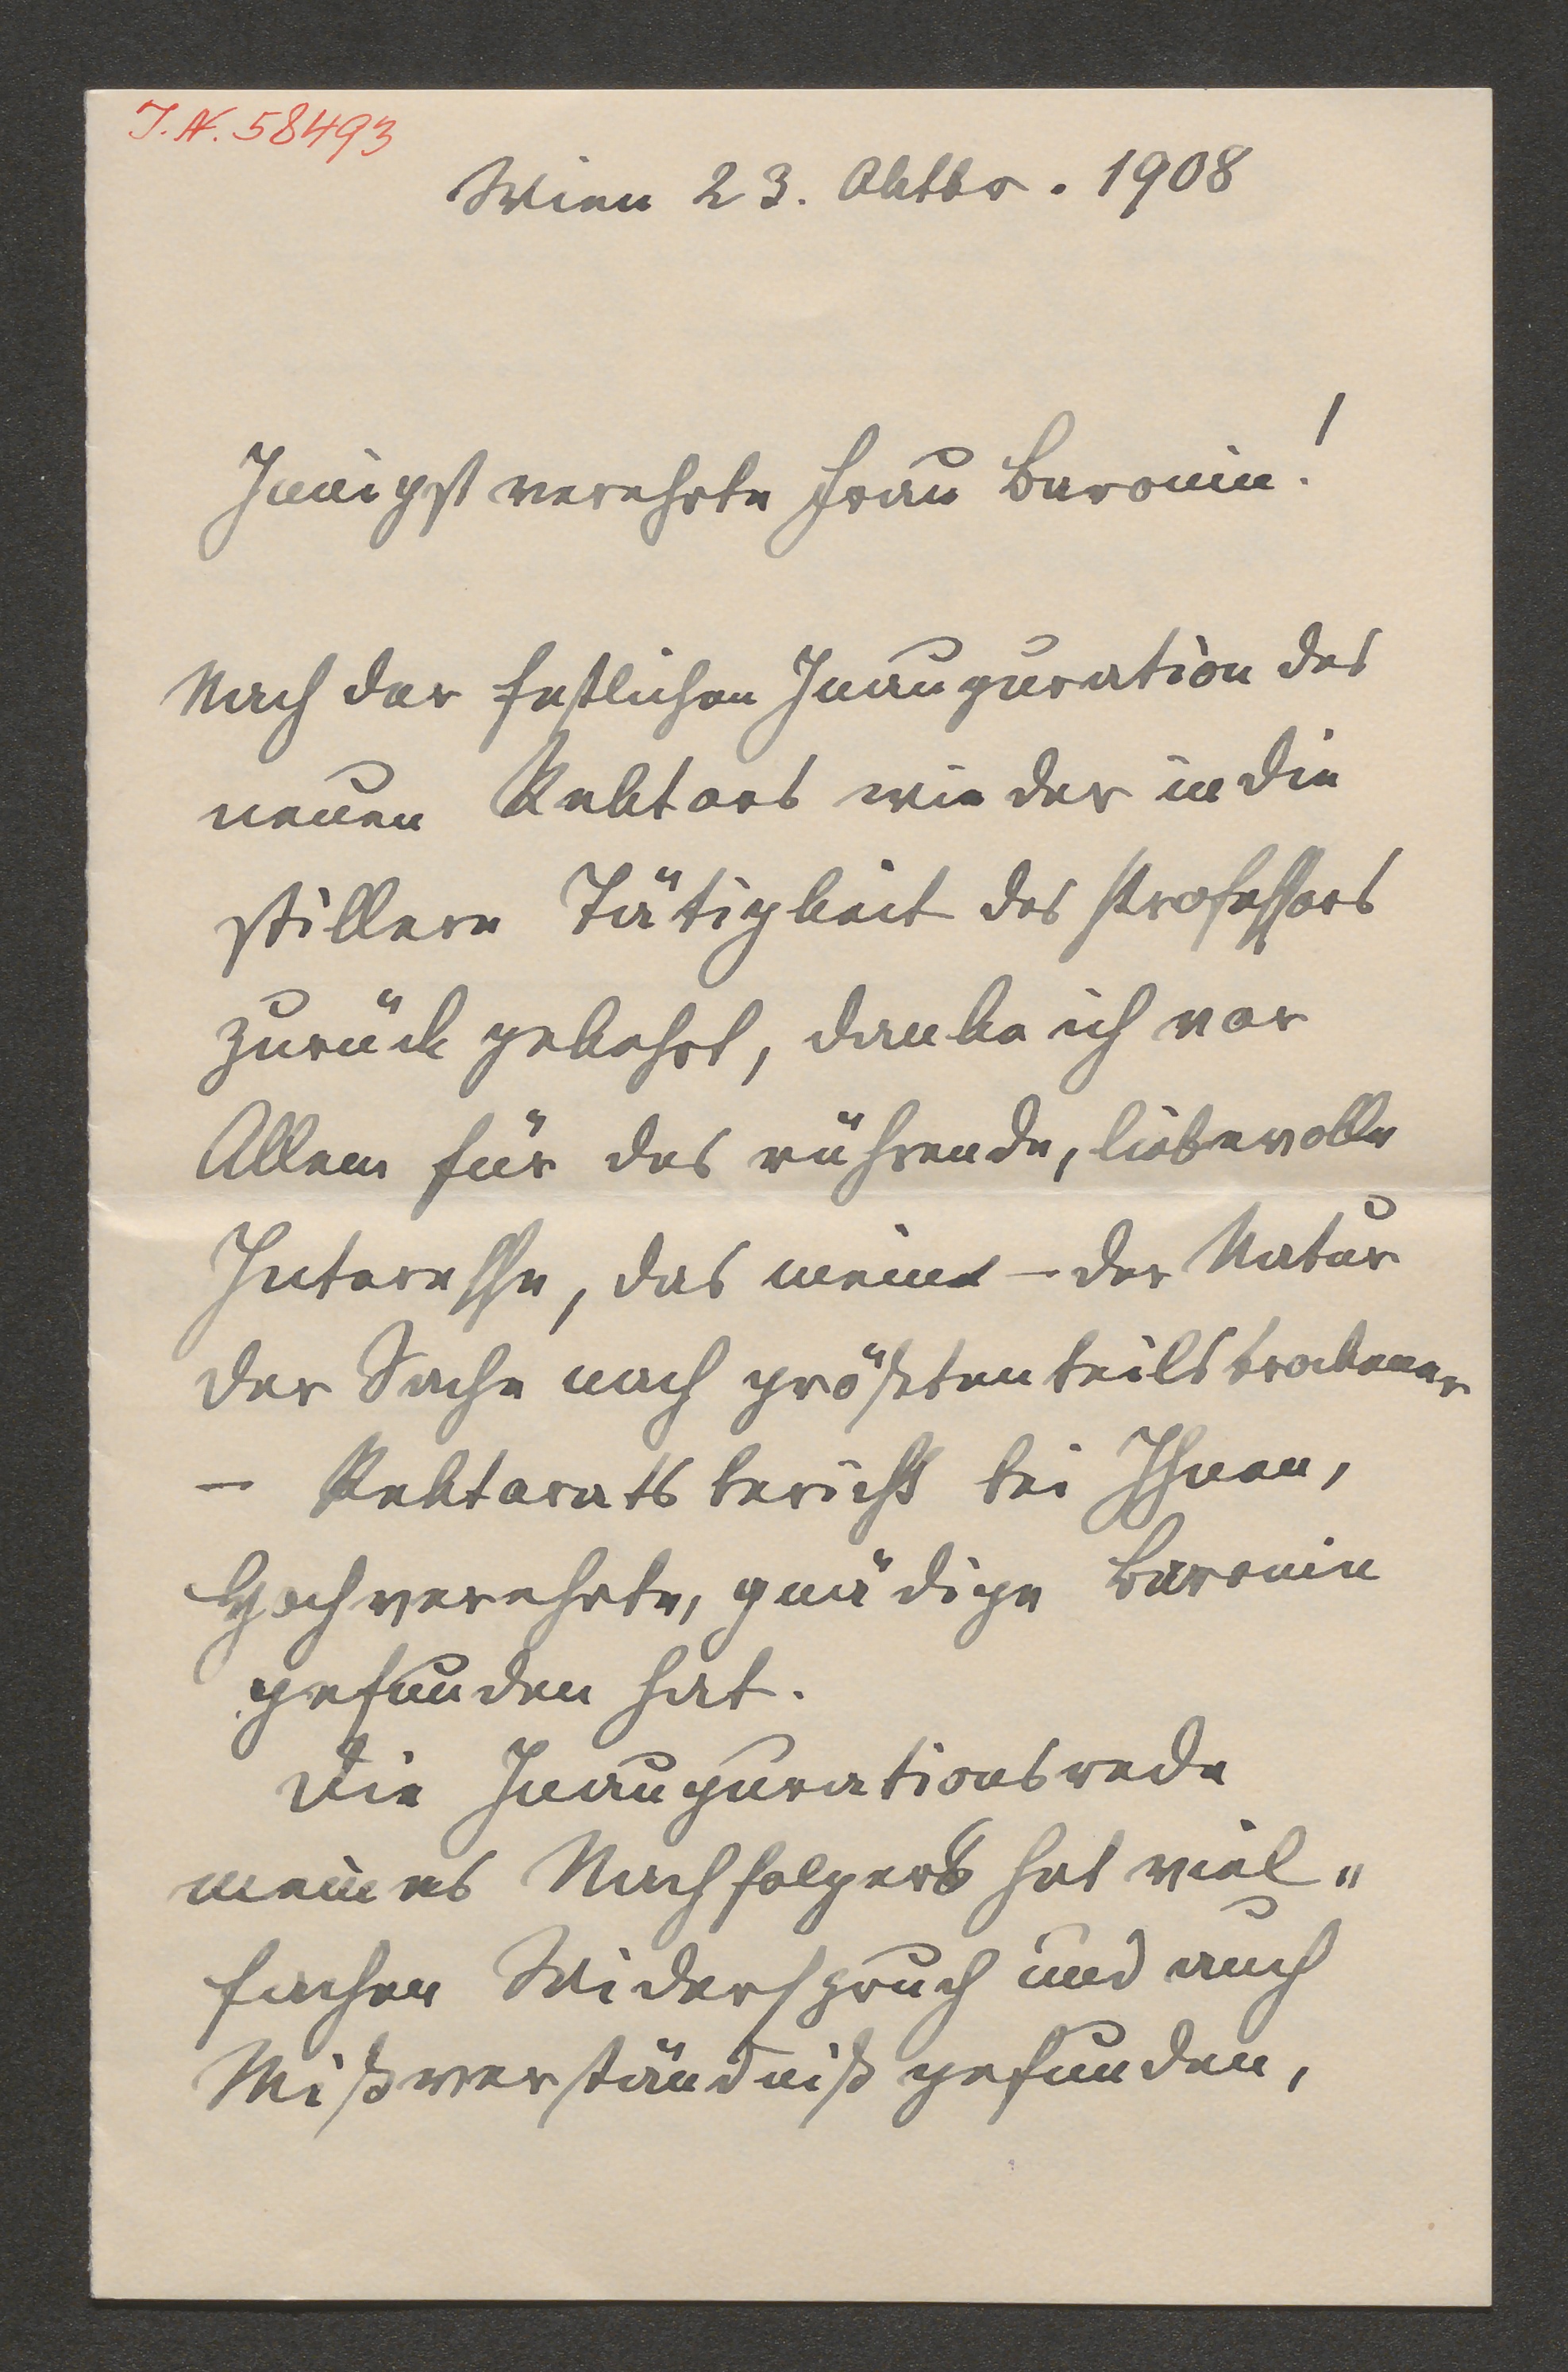 J. N. 58493
Wien 23. Oktbr. 1908
Innigst verehrte Frau Baronin!
Nach der festlichen Inauguration des
neuen Rektors wieder in die
stillere Tätigkeit des Professors
zurück gekehrt, danke ich vor
Allem für das rührende, liebevolle
Interesse, das mein – der Natur
der Sache nach größtenteils trockener
– Rektoratsbericht bei Ihnen,
Hochverehrte, gnädige Baronin
gefunden hat.
Die Inaugurationsrede
meines Nachfolgers hat viel„
fachen Widerspruch und auch
Mißverständniß gefunden,